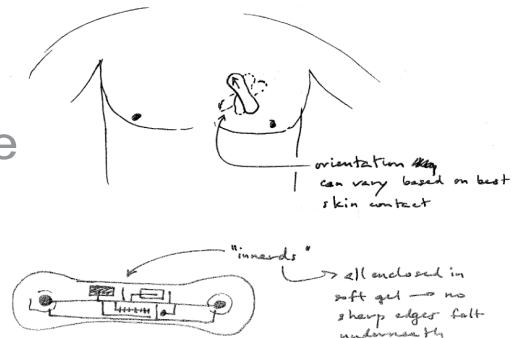 e
orientation
can vary based on best
skin contact
"innards"
all enclosed in
soft gel → no
sharp edges felt
underneath